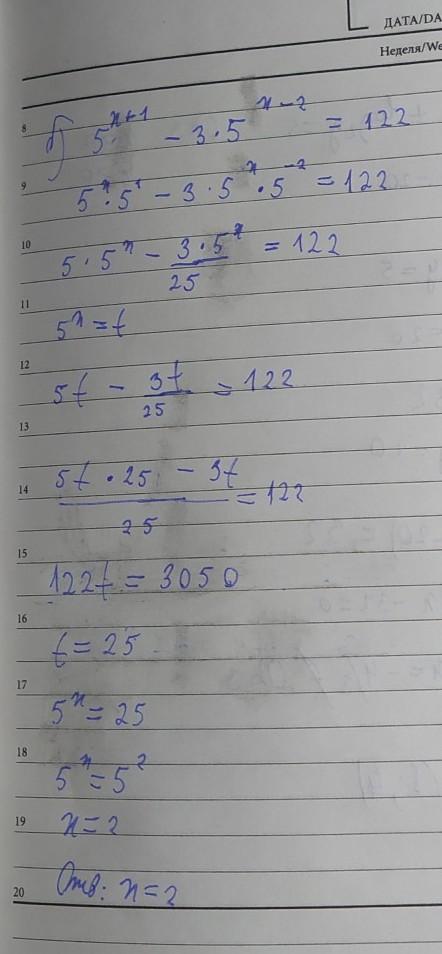 ДАТА/DA
Неделя/We
8
б) 5^{x+1} - 3·5^{x-2} = 122
9
5^x·5^1 - 3·5^x·5^{-2} = 122
10
5·5^x - \frac{3·5^x}{25} = 122
11
5^x = t
12
5t - \frac{3t}{25} = 122
13
14
\frac{5t·25 - 3t}{25} = 122
15
122t = 3050
16
t = 25
17
5^x = 25
18
5^x = 5^2
19
x = 2
20
Отв: x = 2